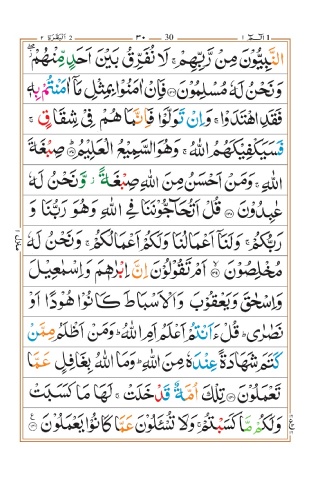 الٓمّٓ ١ 30 ٣٠ 2 الْبَقَرَة ٢
النَّبِيُّوْنَ مِنْ رَّبِّهِمْ ۚ لَا نُفَرِّقُ بَيْنَ اَحَدٍ مِّنْهُمْ ۖ
وَنَحْنُ لَهٗ مُسْلِمُوْنَ ﴿١٣٦﴾ فَاِنْ اٰمَنُوْا بِمِثْلِ مَاۤ اٰمَنْتُمْ بِهٖ
فَقَدِ اهْتَدَوْا ۚ وَاِنْ تَوَلَّوْا فَاِنَّمَا هُمْ فِيْ شِقَاقٍ ۚ
فَسَيَكْفِيْكَهُمُ اللّٰهُ ۚ وَهُوَ السَّمِيْعُ الْعَلِيْمُ ﴿١٣٧﴾ صِبْغَةَ
اللّٰهِ ۚ وَمَنْ اَحْسَنُ مِنَ اللّٰهِ صِبْغَةً ۫ وَّنَحْنُ لَهٗ
عٰبِدُوْنَ ﴿١٣٨﴾ قُلْ اَتُحَآجُّوْنَنَا فِي اللّٰهِ وَهُوَ رَبُّنَا وَ
رَبُّكُمْ ۚ وَلَنَاۤ اَعْمَالُنَا وَلَكُمْ اَعْمَالُكُمْ ۚ وَنَحْنُ لَهٗ
مُخْلِصُوْنَ ﴿١٣٩﴾ اَمْ تَقُوْلُوْنَ اِنَّ اِبْرٰهٖمَ وَاِسْمٰعِيْلَ
وَاِسْحٰقَ وَيَعْقُوْبَ وَالْاَسْبَاطَ كَانُوْا هُوْدًا اَوْ
نَصٰرٰى ۗ قُلْ ءَاَنْتُمْ اَعْلَمُ اَمِ اللّٰهُ ۗ وَمَنْ اَظْلَمُ مِمَّنْ
كَتَمَ شَهَادَةً عِنْدَهٗ مِنَ اللّٰهِ ۗ وَمَا اللّٰهُ بِغَافِلٍ عَمَّا
تَعْمَلُوْنَ ﴿١٤٠﴾ تِلْكَ اُمَّةٌ قَدْ خَلَتْ ۚ لَهَا مَا كَسَبَتْ
وَلَكُمْ مَّا كَسَبْتُمْ ۚ وَلَا تُسْـَٔلُوْنَ عَمَّا كَانُوْا يَعْمَلُوْنَ ﴿١٤١﴾